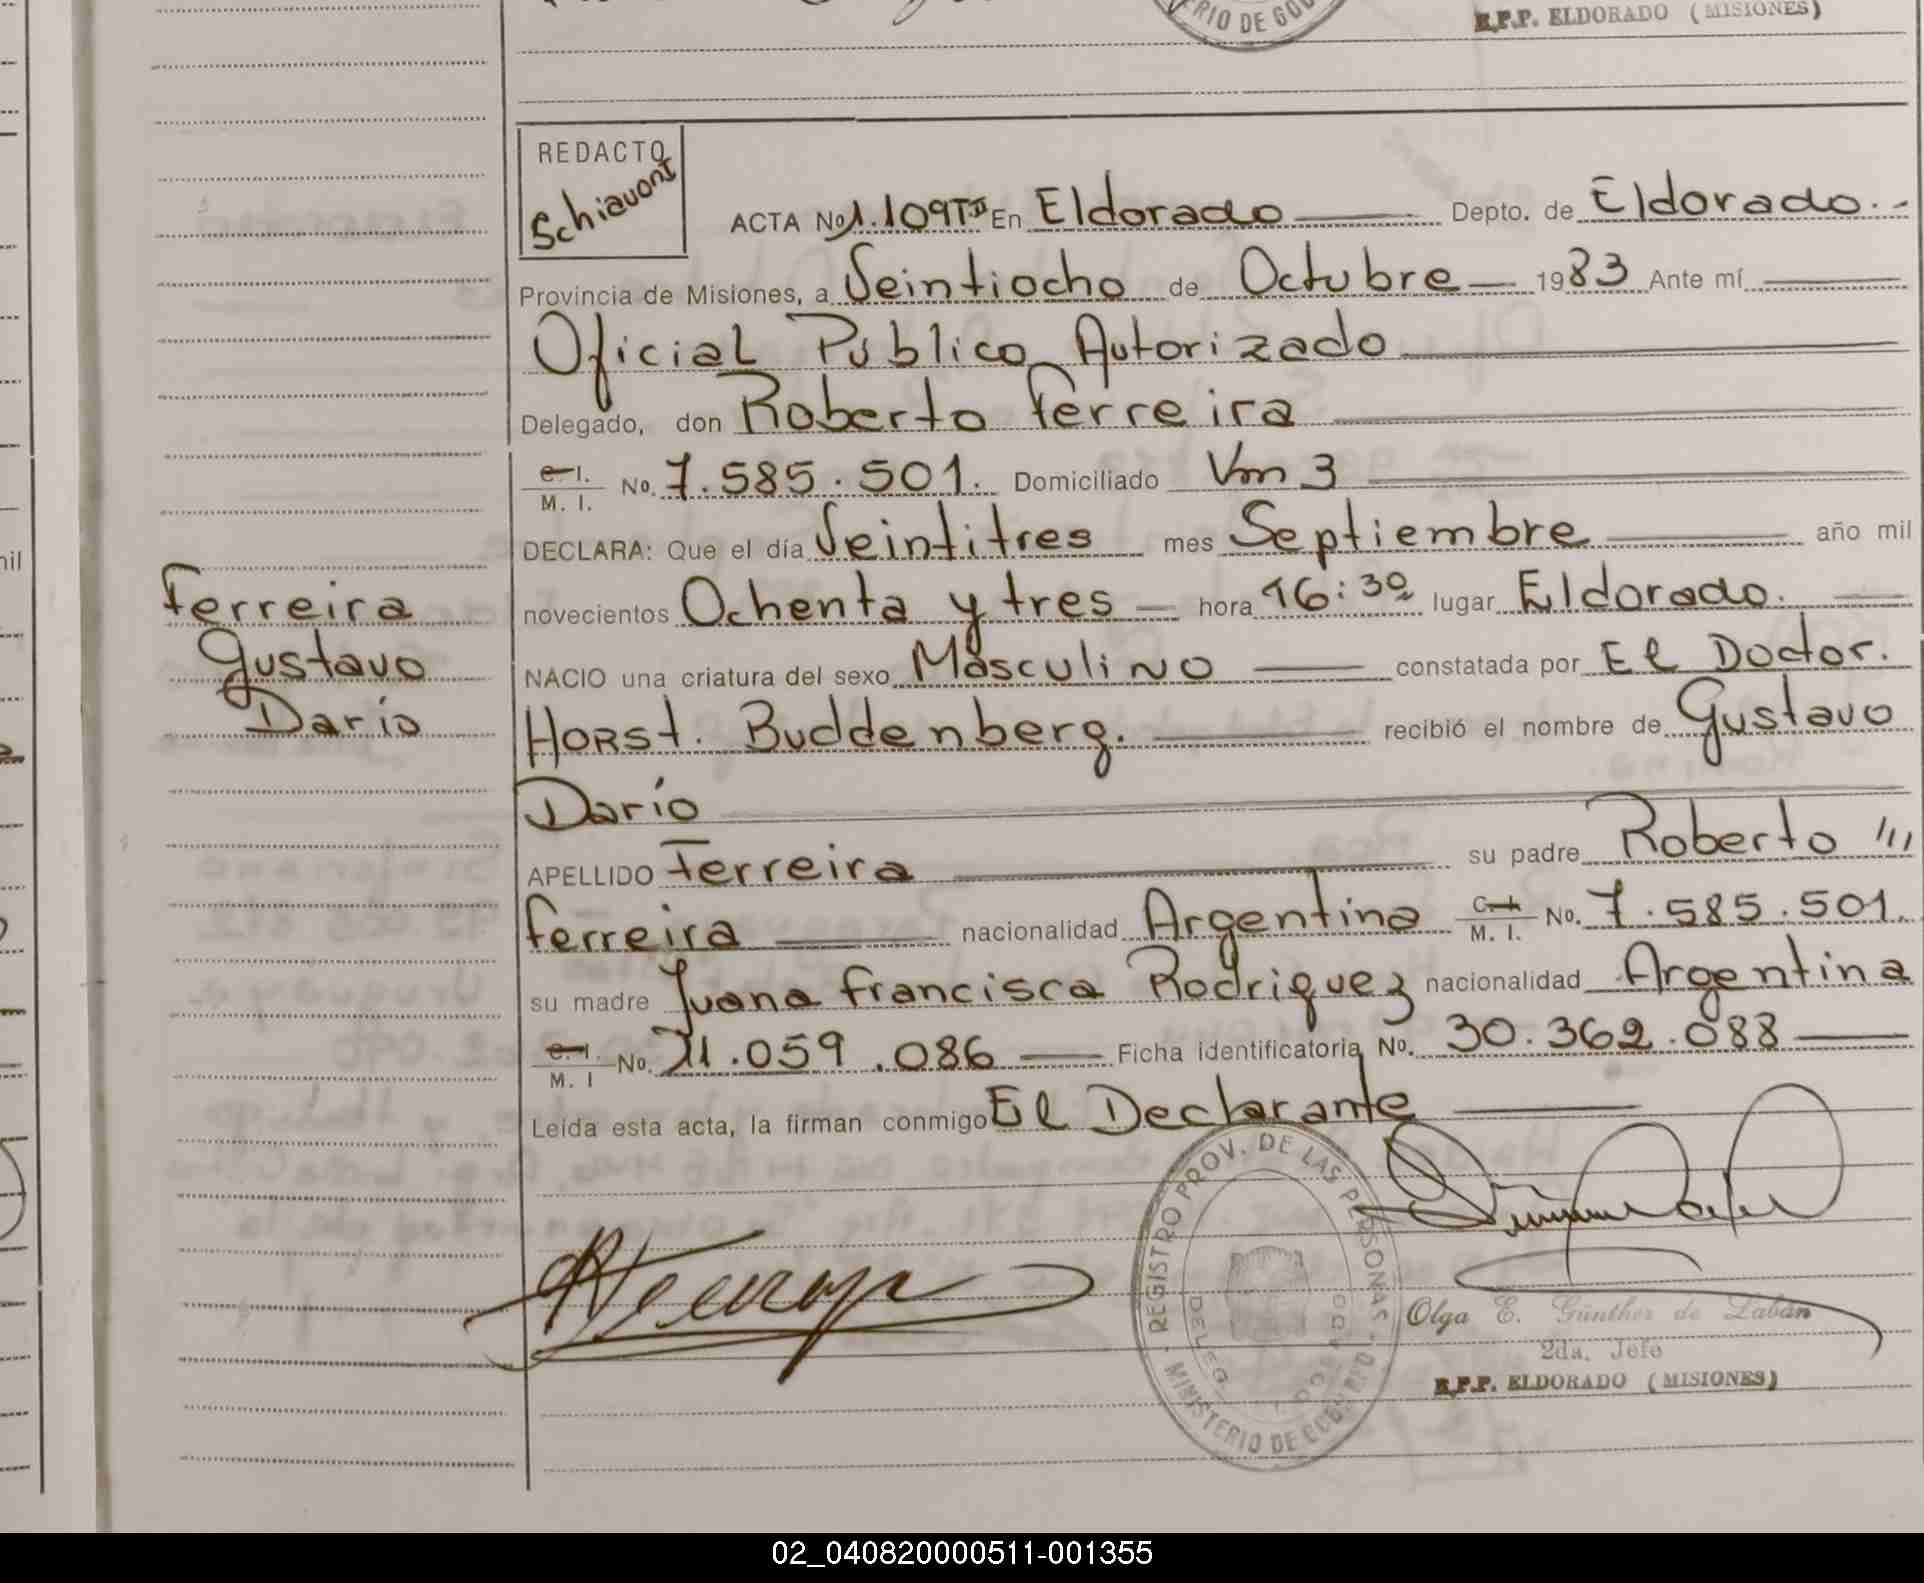 R.P.P. ELDORADO (MISIONES)
REDACTO
Schiavoni
ACTA No 1.109 TII En Eldorado Depto. de Eldorado.-
Provincia de Misiones, a Veintiocho de Octubre 1983 Ante mí
Oficial Público Autorizado
Delegado, don Roberto Ferreira
C. I. M. I. No. 7.585.501. Domiciliado Km 3
DECLARA: Que el día Veintitres mes Septiembre año mil
novecientos Ochenta y tres hora 16:30 lugar Eldorado.
NACIO una criatura del sexo Másculino constatada por El Doctor.
Horst. Buddenberg. recibió el nombre de Gustavo
Darío
APELLIDO Ferreira su padre Roberto ///
Ferreira nacionalidad Argentina C. I. M. I. No. 7.585.501.
su madre Juana Francisca Rodriguez nacionalidad Argentina
C. I. M. I No. 11.059.086 Ficha identificatoria No. 30.362.088
Leída esta acta, la firman conmigo El Declarante
Ferreira
Gustavo
Darío
REGISTRO PROV. DE LAS PERSONAS
MINISTERIO DE GOBIERNO
DELEG. ELDORADO
Olga E. Günther de Labán
2da. Jefe
R.P.P. ELDORADO (MISIONES)
02_040820000511-001355